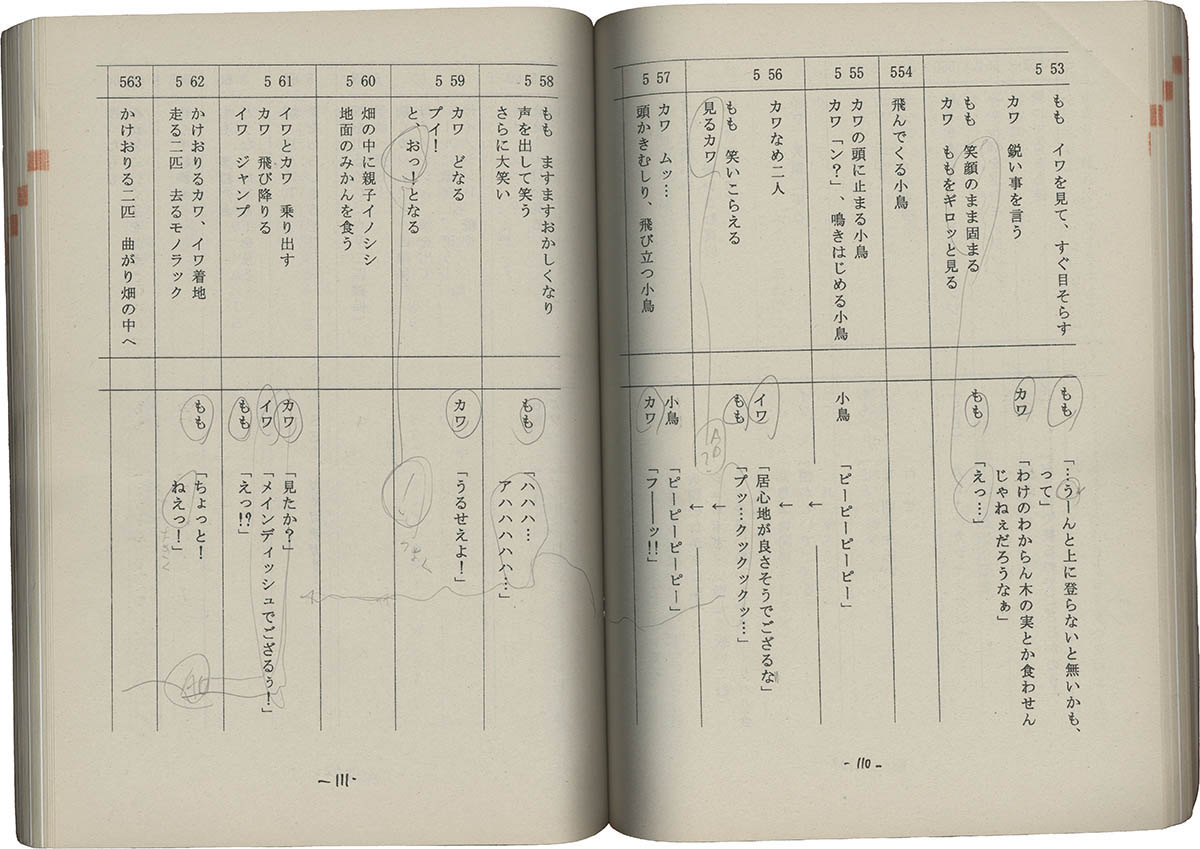 5 53
もも　イワを見て、すぐ目そらす
カワ　鋭い事を言う
もも　笑顔のまま固まる
カワ　ももをギロッと見る
もも
「…うーんと上に登らないと無いかも、
って」
カワ
「わけのわからん木の実とか食わせん
じゃねぇだろうなぁ」
もも
「えっ…」
554
飛んでくる小鳥
5 55
カワの頭に止まる小鳥
カワ「ン？」、鳴きはじめる小鳥
小鳥
「ピーピーピーピー」
←
5 56
カワなめ二人
もも　笑いこらえる
見るカワ
←
イワ
「居心地が良さそうでござるな」
もも
「プッ…クックックッ…」
←
←
5 57
カワ　ムッ…
頭かきむしり、飛び立つ小鳥
小鳥
「ピーピーピーピー」
カワ
「フ――ッ!!」
- 110 -
5 58
もも　ますますおかしくなり
声を出して笑う
さらに大笑い
もも
「ハハハ…
アハハハハハ…」
5 59
カワ　どなる
プイ！
と、おっ！となる
カワ
「うるせえよ！」
！
5 60
畑の中に親子イノシシ
地面のみかんを食う
5 61
イワとカワ　乗り出す
カワ　飛び降りる
イワ　ジャンプ
カワ
「見たか？」
イワ
「メインディッシュでござるぅ！」
もも
「えっ!?」
5 62
かけおりるカワ、イワ着地
走る二匹　去るモノラック
もも
「ちょっと！
ねえっ！」
563
かけおりる二匹　曲がり畑の中へ
- 111 -